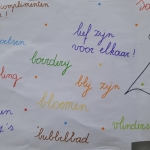 complimenten
lief zijn
voor elkaar!
boerderij
ling
blij zijn
bloemen
bubbelbad
vlinders